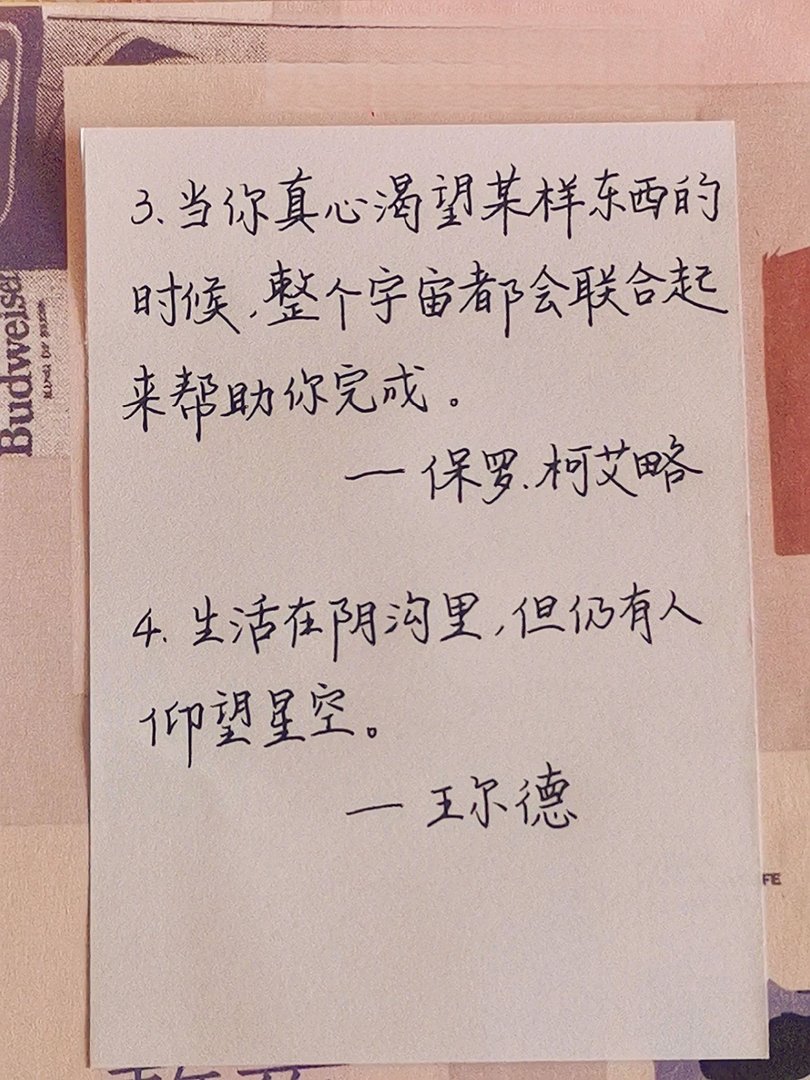 3.当你真心渴望某样东西的
时候,整个宇宙都会联合起
来帮助你完成。
一保罗.柯艾略
4.生活在阴沟里,但仍有人
仰望星空。
一王尔德
Budweiser
FE